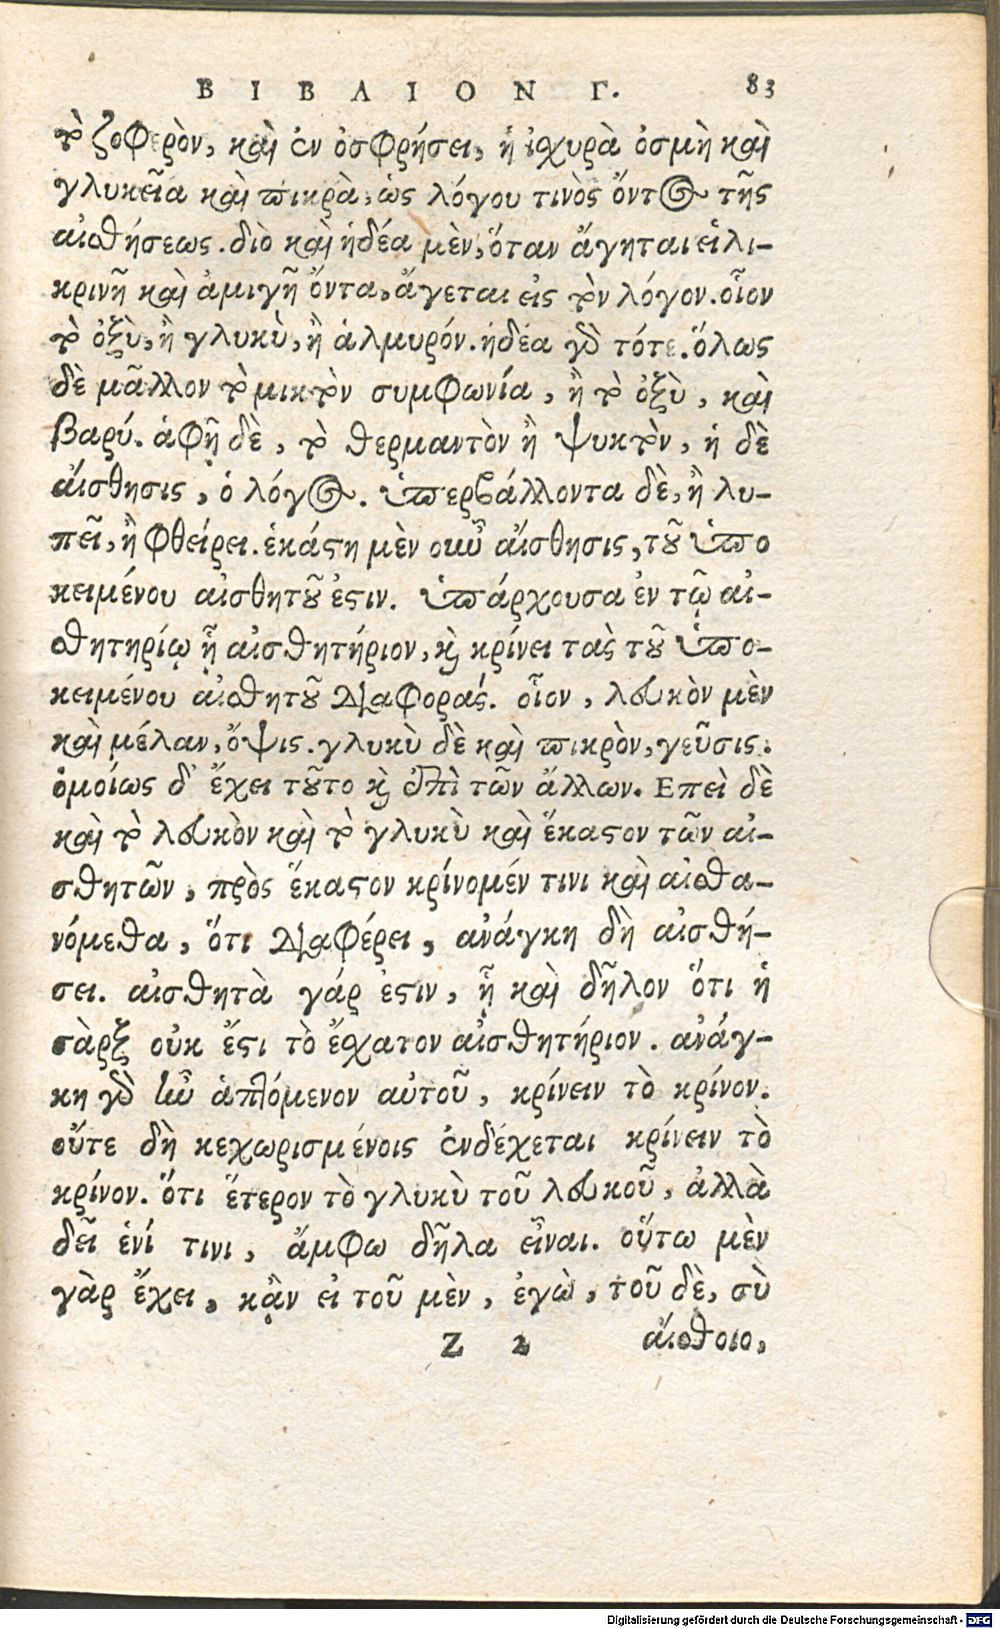 ΒΙΒΛΙΟΝ Γ. 83
τὸ ζοφερὸν, καὶ ἐν ὀσφρήσει, ἡ ἰσχυρὰ ὀσμὴ καὶ
γλυκεῖα καὶ πικρὰ, ὡς λόγου τινὸς ὄντος τῆς
αἰσθήσεως. διὸ καὶ ἡδέα μὲν, ὅταν ἄγηται εἰλι-
κρινῆ καὶ ἀμιγῆ ὄντα, ἄγεται εἰς τὸν λόγον. οἷον
τὸ ὀξὺ, ἢ γλυκὺ, ἢ ἁλμυρόν. ἡδέα γὰρ τότε. ὅλως
δὲ μᾶλλον τὸ μικτὸν συμφωνία, ἢ τὸ ὀξὺ, καὶ
βαρύ. ἁφῇ δὲ, τὸ θερμαντὸν ἢ ψυκτὸν, ἡ δὲ
αἴσθησις, ὁ λόγος. ὑπερβάλλοντα δὲ, ἢ λυ-
πεῖ, ἢ φθείρει. ἑκάστη μὲν οὖν αἴσθησις, τοῦ ὑπο
κειμένου αἰσθητοῦ ἐστιν. ὑπάρχουσα ἐν τῷ αἰ-
σθητηρίῳ ᾗ αἰσθητήριον, καὶ κρίνει τὰς τοῦ ὑπο-
κειμένου αἰσθητοῦ διαφοράς. οἷον, λευκὸν μὲν
καὶ μέλαν, ὄψις. γλυκὺ δὲ καὶ πικρὸν, γεῦσις.
ὁμοίως δ' ἔχει τοῦτο καὶ ἐπὶ τῶν ἄλλων. Επεὶ δὲ
καὶ τὸ λευκὸν καὶ τὸ γλυκὺ καὶ ἕκαστον τῶν αἰ-
σθητῶν, πρὸς ἕκαστον κρίνομέν τινι καὶ αἰσθα-
νόμεθα, ὅτι διαφέρει, ἀνάγκη δὴ αἰσθή-
σει. αἰσθητὰ γάρ ἐστιν, ᾗ καὶ δῆλον ὅτι ἡ
σὰρξ οὐκ ἔστι τὸ ἔσχατον αἰσθητήριον. ἀνάγ-
κη γὰρ ἦν ἁπτόμενον αὐτοῦ, κρίνειν τὸ κρίνον.
οὔτε δὴ κεχωρισμένοις ἐνδέχεται κρίνειν τὸ
κρίνον. ὅτι ἕτερον τὸ γλυκὺ τοῦ λευκοῦ, ἀλλὰ
δεῖ ἑνί τινι, ἄμφω δῆλα εἶναι. οὕτω μὲν
γὰρ ἔχει, κᾂν εἰ τοῦ μὲν, ἐγὼ, τοῦ δὲ, σὺ
Z 2 αἴσθοιο,
Digitalisierung gefördert durch die Deutsche Forschungsgemeinschaft - DFG